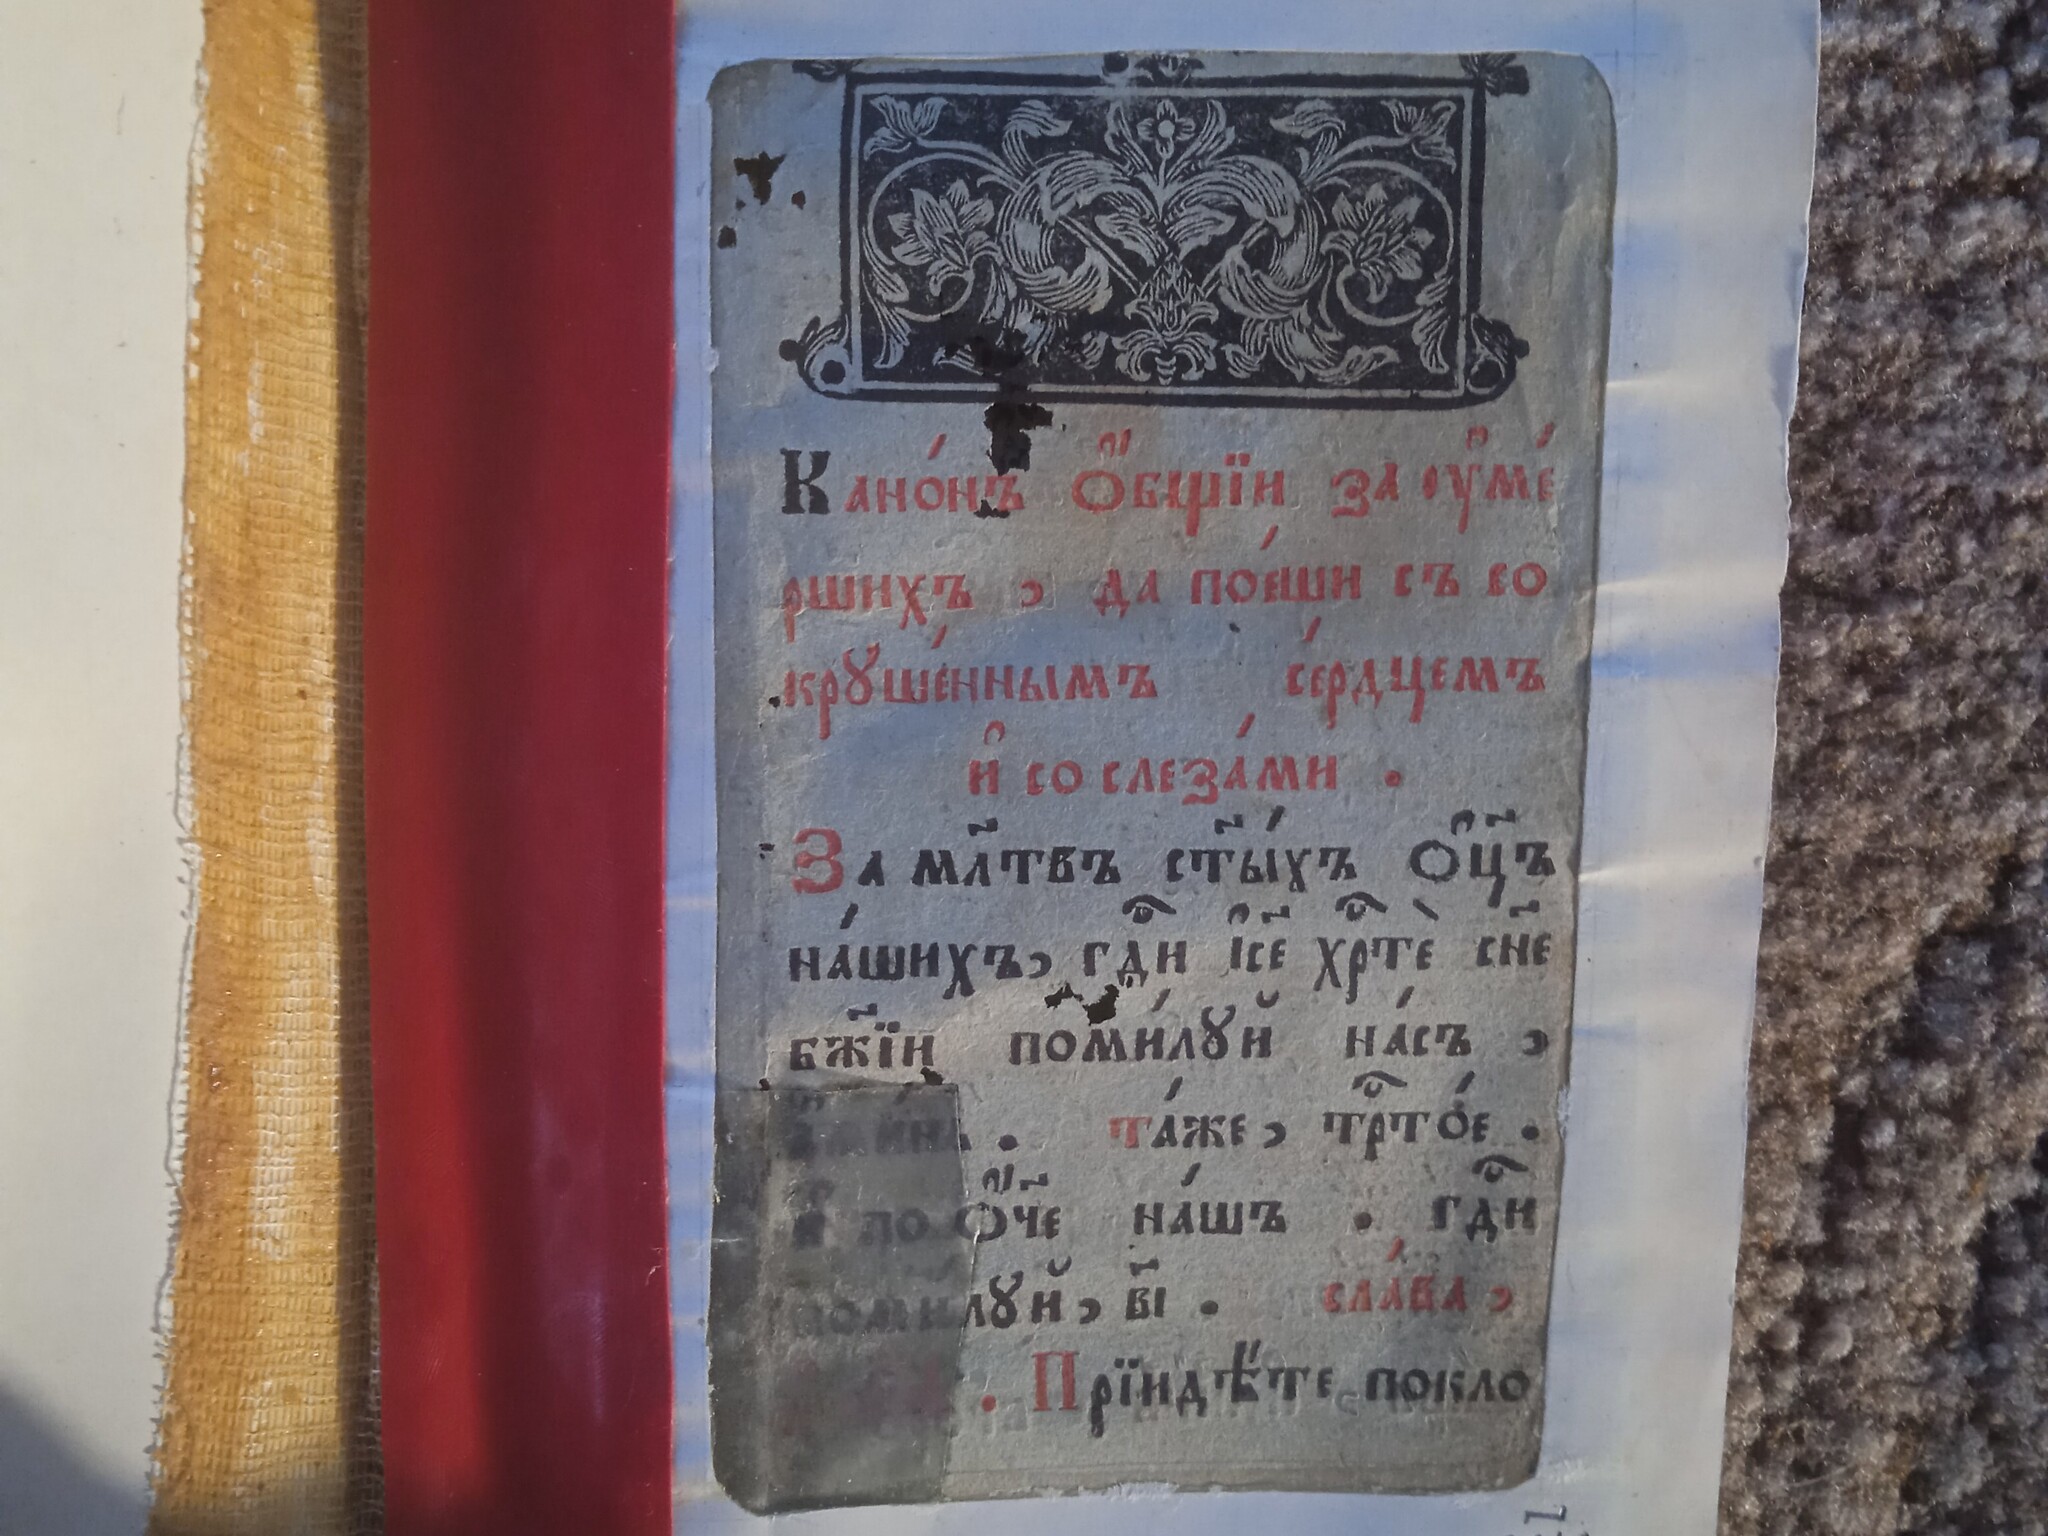 Кано́нъ ѻ҆́бщїи за ᲂу҆ме́
ршихъ , да пое́ши съ со
крꙋше́ннымъ се́рдцемъ
и҆ со слеза́ми .
За мл҃твъ ст҃ы́хъ ѻ҆ц҃ъ
на́шихъ, гдⷭ҇и і҆с҃е хрⷭ҇тѐ сн҃е
бж҃їи поми́лꙋй на́съ ,
а҆ми́нь . та́же, трⷭ҇то́е .
и҆ по ѻ҆́ч҃е на́шъ . гдⷭ҇и
поми́лꙋй, в҃і . сла́ва,
. Прїидѣ́те покло